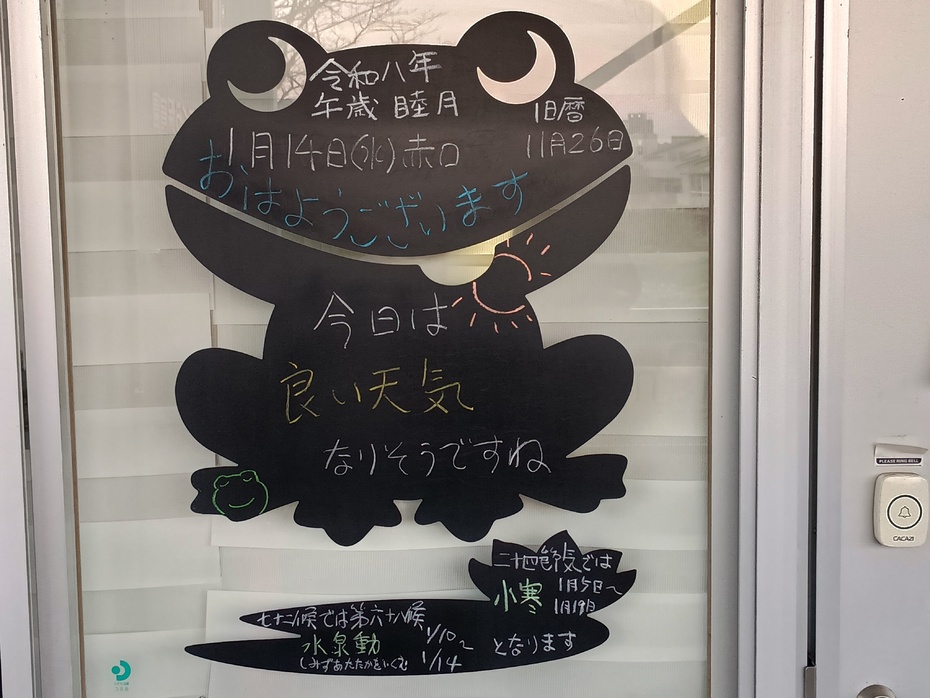 令和八年
午歳 睦月
旧暦
11月26日
1月14日(水)赤口
おはようございます
今日は
良い天気
なりそうですね
二十四節気では
小寒 1月5日〜
1月19日
七十二候では第六十八候
水泉動 1/10〜
1/14
と合ります
PLEASE RING BELL
CACAZI